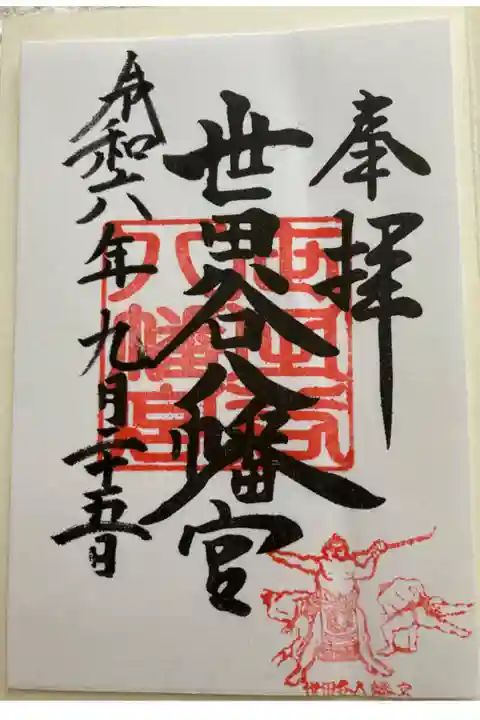 奉拝
世田谷八幡宮
令和六年九月二十五日
世田谷八幡宮